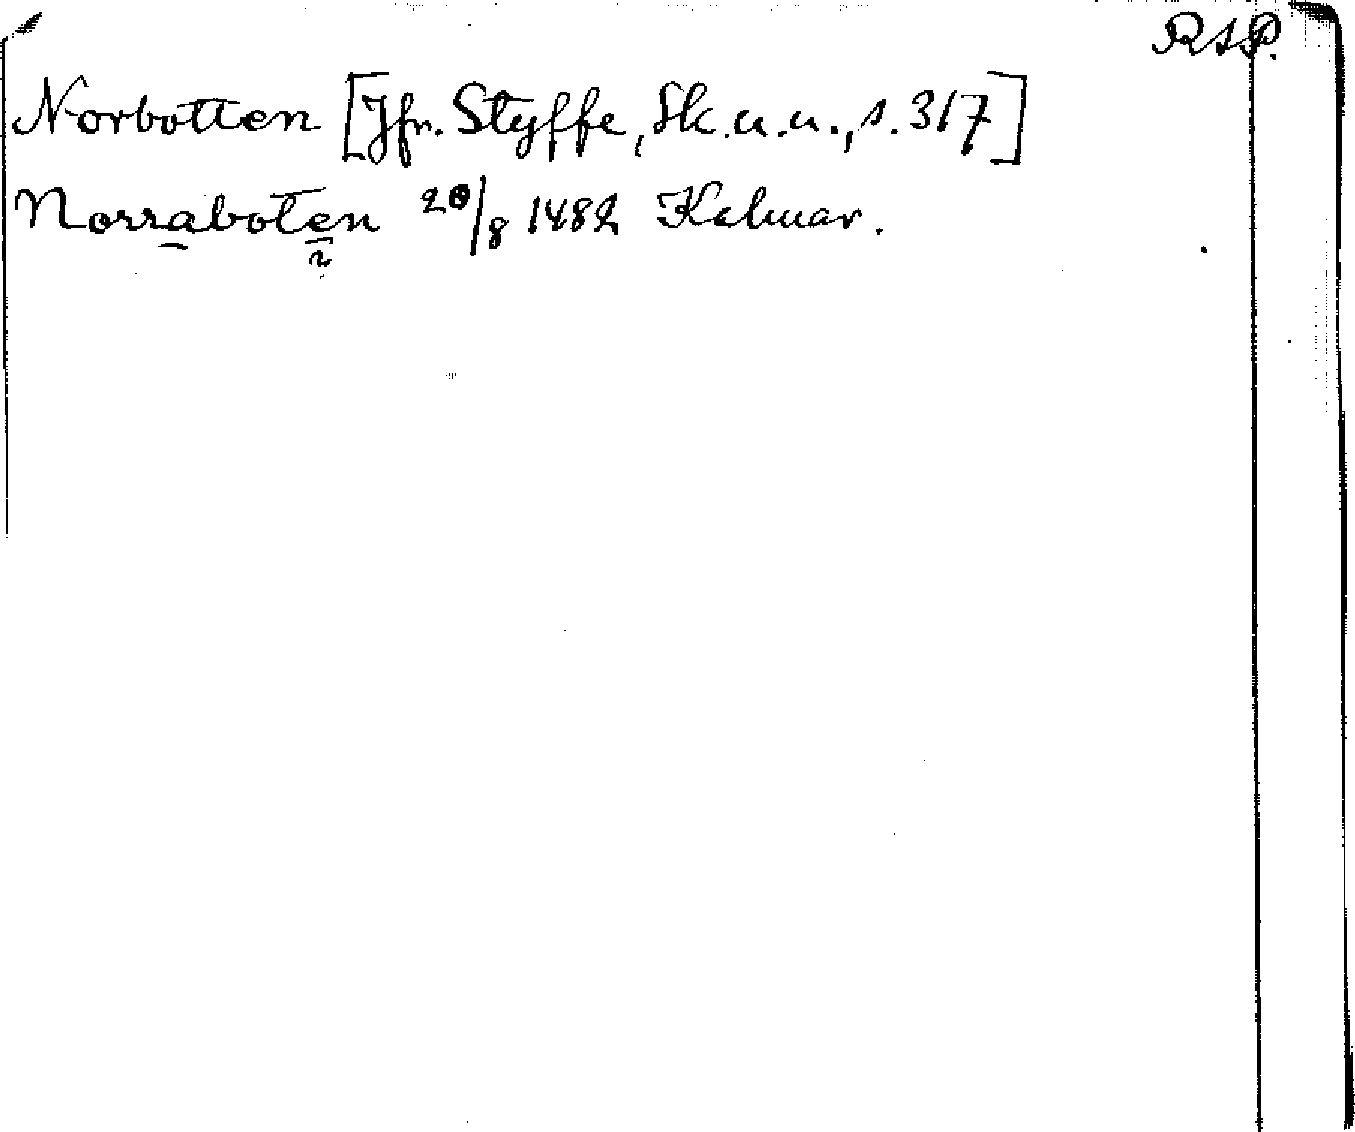 RAP.
Norbotten [Jfr. Styffe, Sk. u. u., s. 317]
Norraboten 20/8 1482 Kalmar.